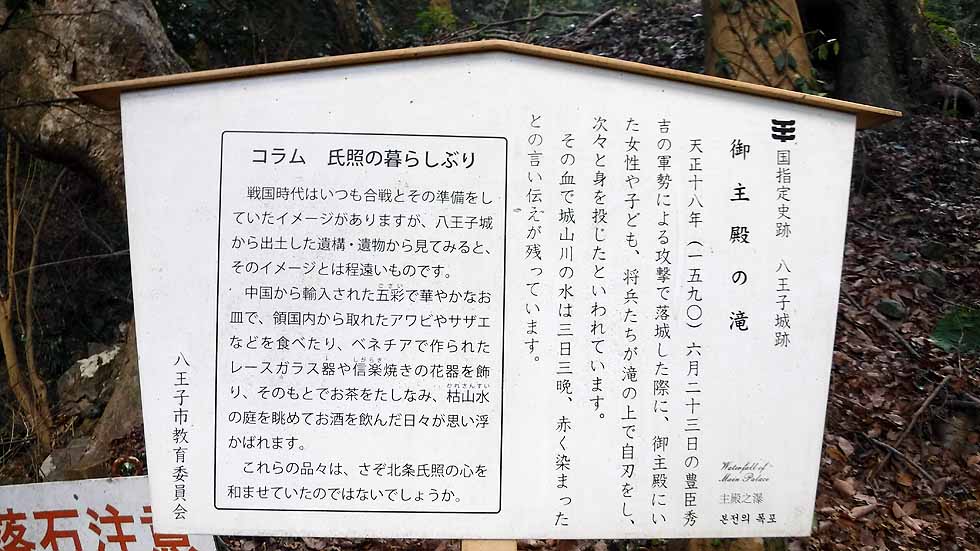 国指定史跡　八王子城跡
御主殿の滝
天正十八年（一五九〇）六月二十三日の豊臣秀
吉の軍勢による攻撃で落城した際に、御主殿にい
た女性や子ども、将兵たちが滝の上で自刃をし、
次々と身を投じたといわれています。
その血で城山川の水は三日三晩、赤く染まった
との言い伝えが残っています。
Waterfall of
Main Palace
主殿之瀑
본전의 폭포
コラム　氏照の暮らしぶり
戦国時代はいつも合戦とその準備をし
ていたイメージがありますが、八王子城
から出土した遺構・遺物から見てみると、
そのイメージとは程遠いものです。
中国から輸入された五彩で華やかなお
皿で、領国内から取れたアワビやサザエ
などを食べたり、ベネチアで作られた
レースガラス器や信楽焼きの花器を飾
り、そのもとでお茶をたしなみ、枯山水
の庭を眺めてお酒を飲んだ日々が思い浮
かばれます。
これらの品々は、さぞ北条氏照の心を
和ませていたのではないでしょうか。
八王子市教育委員会
落石注意